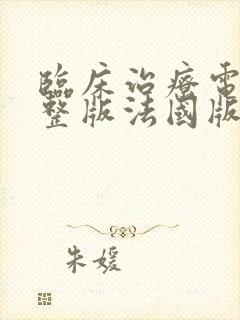 臨床治療電
整版法國版
朱媛